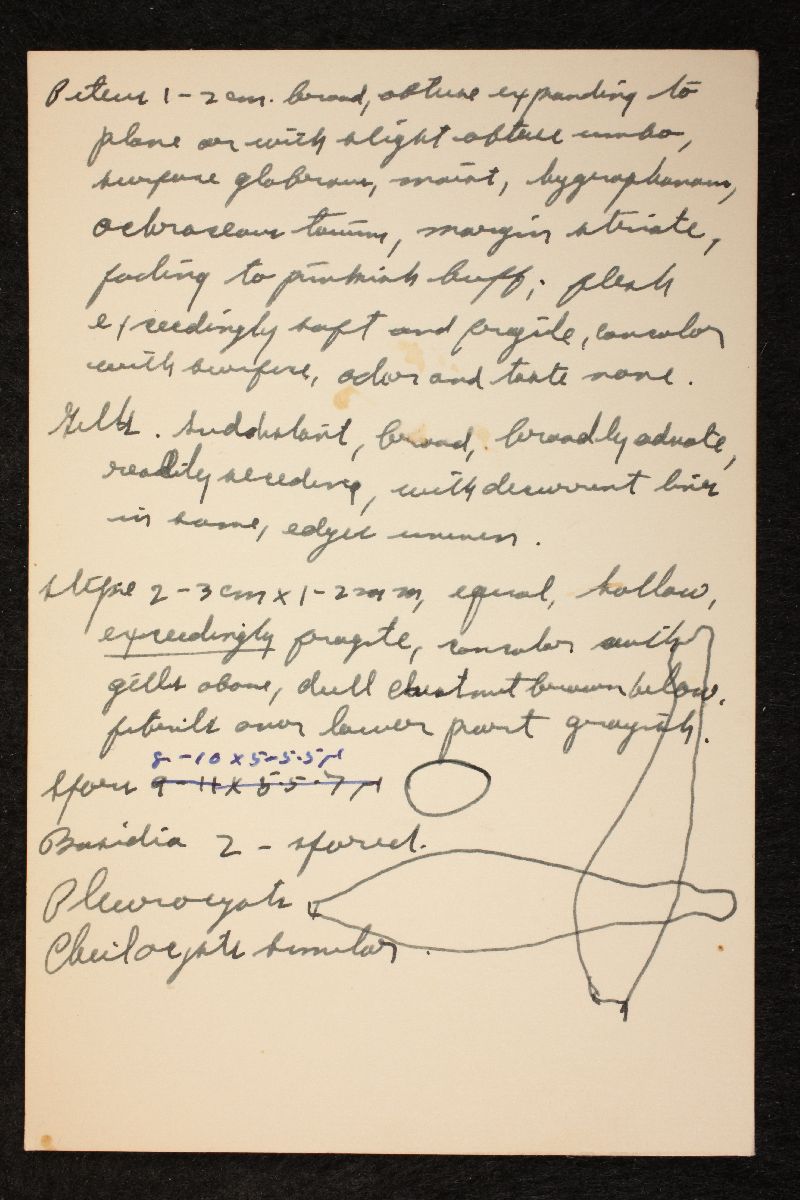 Pileus 1-2 cm. broad, obtuse expanding to
plane or with slight obtuse umbo,
surface glabrous, moist, hygrophanous,
ochraceous tawny, margin striate,
fading to pinkish buff; flesh
exceedingly soft and fragile, concolor
with surface, odor and taste none.
Gills. subdistant, broad, broadly adnate,
readily seceding, with decurrent lines
in some, edges uneven.
Stipe 2-3 cm x 1-2 mm, equal, hollow,
exceedingly fragile, concolor with
gills above, dull chestnut brown below,
fibrils over lower part grayish.
8-10 x 5-5.5 µ
Spores 9-11 x 5.5-7 µ
Basidia 2-spored.
Pleurocysts
Cheilocysts similar.